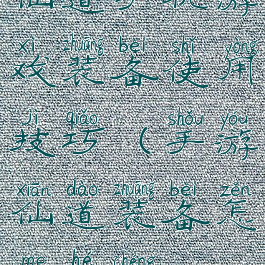 仙道手机游
xì zhuāng bèi shǐ yòng
戏装备使用
jì qiǎo shǒu yóu
技巧（手游
xiān dào zhuāng bèi zěn
仙道装备怎
me hé chéng